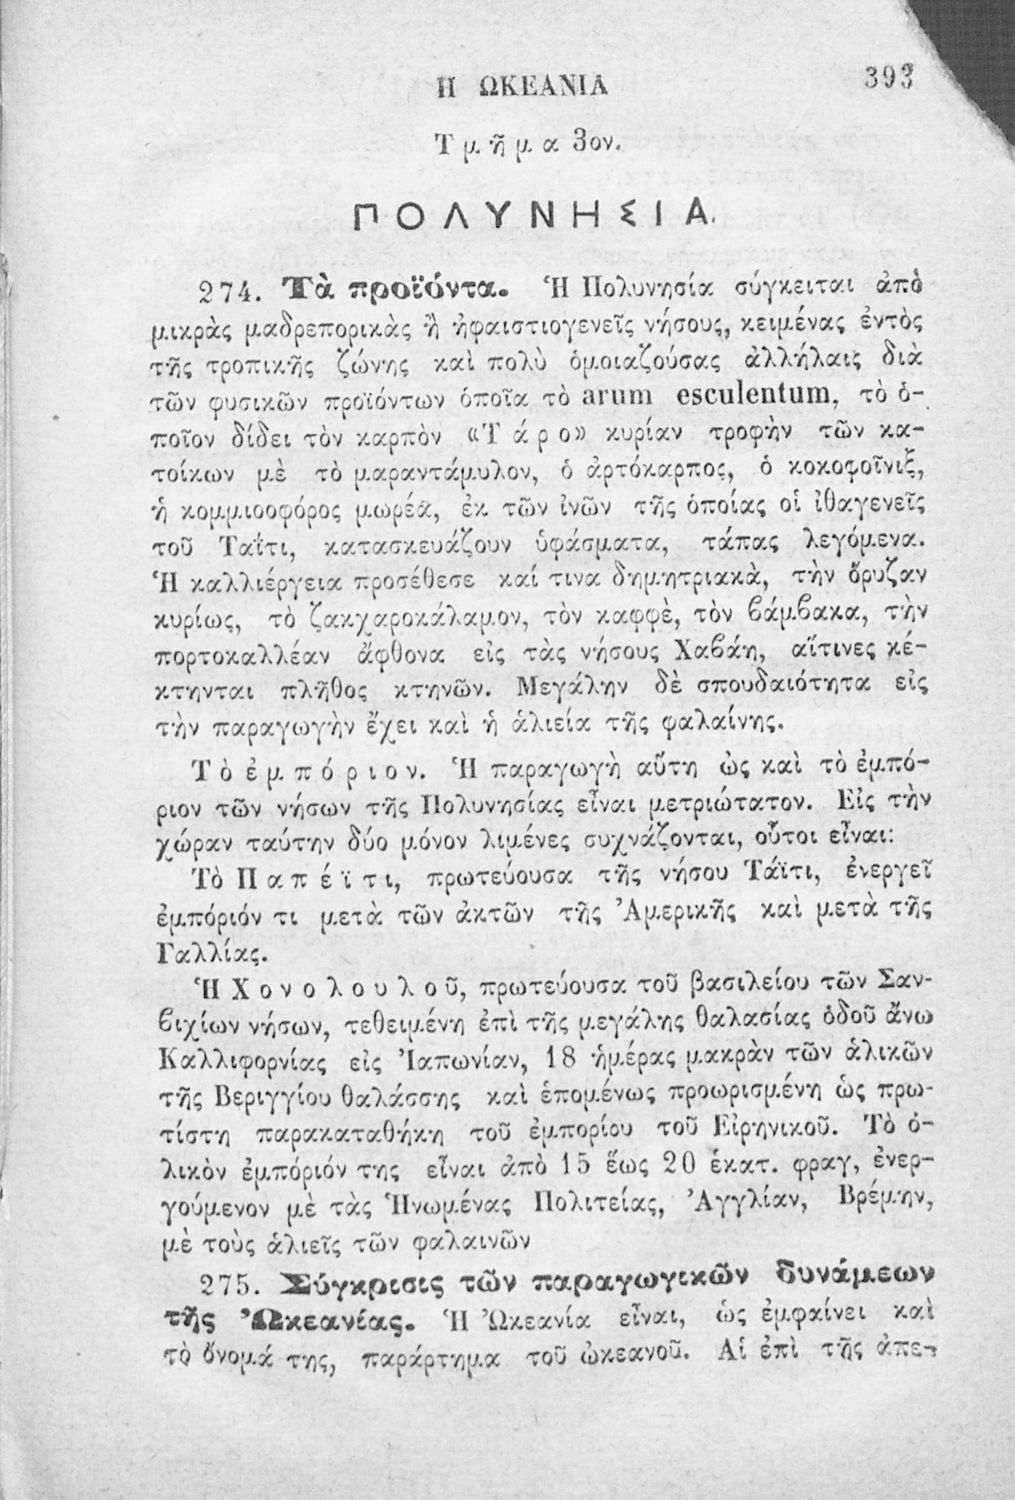 Η ΩΚΕΑΝΙΑ
393
Τμῆμα 3ον.
ΠΟΛΥΝΗΣΙΑ.
274. Τὰ προϊόντα. Ἡ Πολυνησία σύγκειται ἀπὸ
μικρὰς μαδρεπορικὰς ἢ ἡφαιστιογενεῖς νήσους, κειμένας ἐντὸς
τῆς τροπικῆς ζώνης καὶ πολὺ ὁμοιαζούσας ἀλλήλαις διὰ
τῶν φυσικῶν προϊόντων ὁποῖα τὸ arum esculentum, τὸ ὁ-
ποῖον δίδει τὸν καρπὸν «Τάρο» κυρίαν τροφὴν τῶν κα-
τοίκων μὲ τὸ μαραντάμυλον, ὁ ἀρτόκαρπος, ὁ κοκοφοῖνιξ,
ἡ κομμιοοφόρος μωρέα, ἐκ τῶν ἰνῶν τῆς ὁποίας οἱ ἰθαγενεῖς
τοῦ Ταΐτι, κατασκευάζουν ὑφάσματα, τάπας λεγόμενα.
Ἡ καλλιέργεια προσέθεσε καί τινα δημητριακὰ, τὴν ὄρυζαν
κυρίως, τὸ ζακχαροκάλαμον, τὸν καφφὲ, τὸν βάμβακα, τὴν
πορτοκαλλέαν ἄφθονα εἰς τὰς νήσους Χαβάη, αἵτινες κέ-
κτηνται πλῆθος κτηνῶν. Μεγάλην δὲ σπουδαιότητα εἰς
τὴν παραγωγὴν ἔχει καὶ ἡ ἁλιεία τῆς φαλαίνης.
Τὸ ἐμπόριον. Ἡ παραγωγὴ αὕτη ὡς καὶ τὸ ἐμπό-
ριον τῶν νήσων τῆς Πολυνησίας εἶναι μετριώτατον. Εἰς τὴν
χώραν ταύτην δύο μόνον λιμένες συχνάζονται, οὗτοι εἶναι:
Τὸ Παπέϊτι, πρωτεύουσα τῆς νήσου Τάϊτι, ἐνεργεῖ
ἐμπόριόν τι μετὰ τῶν ἀκτῶν τῆς Ἀμερικῆς καὶ μετὰ τῆς
Γαλλίας.
Ἡ Χονολουλοῦ, πρωτεύουσα τοῦ βασιλείου τῶν Σαν-
βιχίων νήσων, τεθειμένη ἐπὶ τῆς μεγάλης θαλασίας ὁδοῦ ἄνω
Καλλιφορνίας εἰς Ἰαπωνίαν, 18 ἡμέρας μακρὰν τῶν ἁλικῶν
τῆς Βεριγγίου θαλάσσης καὶ ἑπομένως προωρισμένη ὡς πρω-
τίστη παρακαταθήκη τοῦ ἐμπορίου τοῦ Εἰρηνικοῦ. Τὸ ὁ-
λικὸν ἐμπόριόν της εἶναι ἀπὸ 15 ἕως 20 ἑκατ. φραγ, ἐνερ-
γούμενον μὲ τὰς Ἡνωμένας Πολιτείας, Ἀγγλίαν, Βρέμην,
μὲ τοὺς ἁλιεῖς τῶν φαλαινῶν
275. Σύγκρισις τῶν παραγωγικῶν δυνάμεων
τῆς Ὠκεανίας. Ἡ Ὠκεανία εἶναι, ὡς ἐμφαίνει καὶ
τὸ ὄνομά της, παράρτημα τοῦ ὠκεανοῦ. Αἱ ἐπὶ τῆς ἀπε-